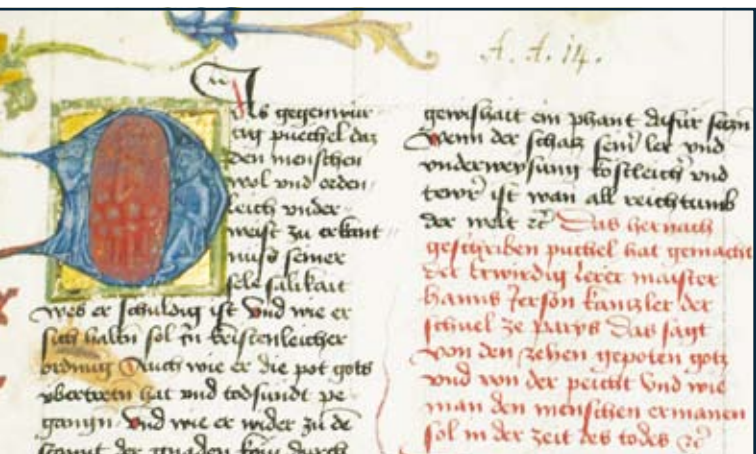 A. A. 14.
Das gegenwür
tig puechel daz
den menschen
wol vnd orden
leich vnder
weist zu erkant
nuss seiner
sele salikait
wes er schuldig ist Vnd wie er
sich haltn sol in kristenleicher
ordnug Auch wie er die pot gots
vbertretn hat vnd todsundt pe
gangn Vnd wie er wider zu de
der gnaden kom durch
gewishait ein phant dafür seczn
Wenn der schacz seinˀ ler vnd
vnderweysung kostleichˀ vnd
tewrˀ ist wan all reichtumb
der welt ⁊c̃ Das hernach
geschriben puchel hat gemacht
der Erwirdig lerer maister
hanns Jerson kanczler der
schuel ze parys Das sagt
von den zehen gepoten gotz
vnd von der peicht Vnd wie
man den menschen ermanen
sol in der zeit des todes ⁊c̃